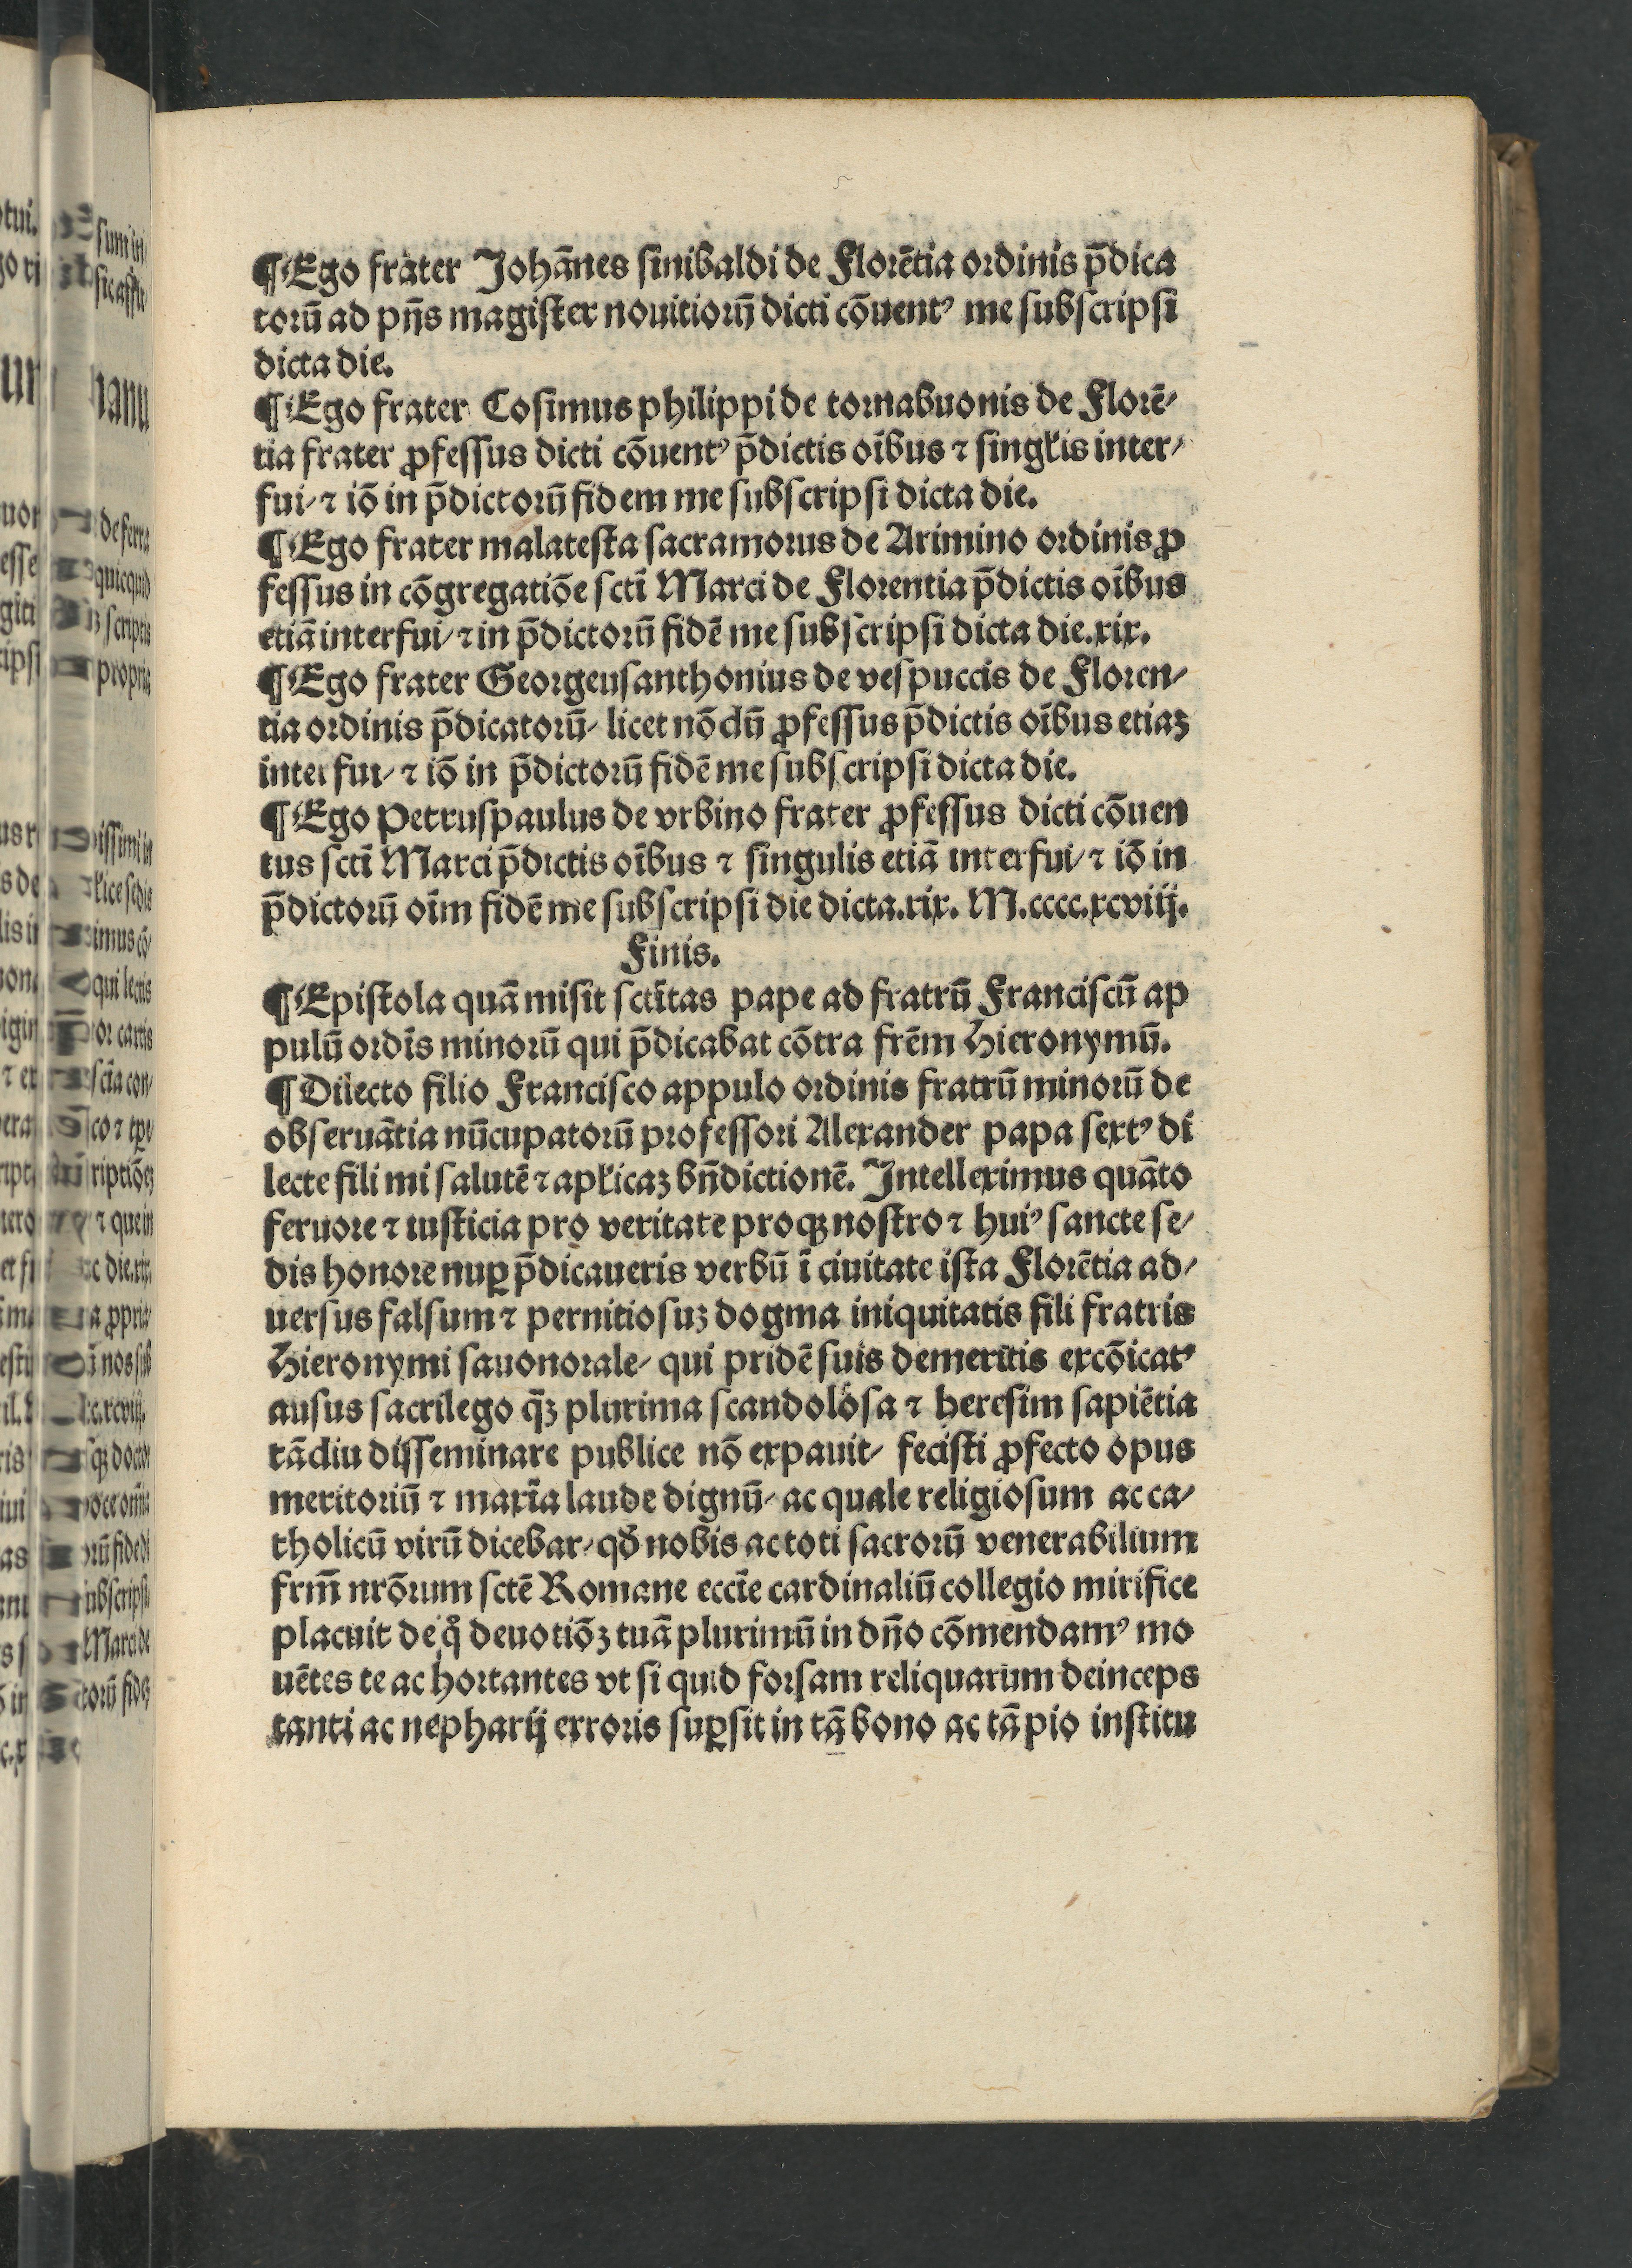 ¶ Ego frater Johānes sinibaldi de Florētia ordinis p̄dica
torū ad pn̄s magister nouitiorū dicti cōuentꝰ me subscripsi
dicta die.
¶ Ego frater Cosimus philippi de tornabuonis de Florē⸗
tia frater ꝓfessus dicti cōuentꝰ p̄dictis oībus ⁊ singĺis inter⸗
fui⸗ ⁊ iō in p̄dictorū fidem me subscripsi dicta die.
¶ Ego frater malatesta sacramorus de Arimino ordinis ꝓ
fessus in cōgregatiōe sctī Marci de Florentia p̄dictis oībus
etiā interfui⸗ ⁊ in p̄dictorū fidē me subscripsi dicta die.xix.
¶ Ego frater Georgeusanthonius de vespuccis de Floren⸗
tia ordinis p̄dicatorū⸗ licet nō dū ꝓfessus p̄dictis oībus etiaꝫ
interfui⸗ ⁊ iō in p̄dictorū fidē me subscripsi dicta die.
¶ Ego Petruspaulus de vrbino frater ꝓfessus dicti cōuen
tus sctī Marci p̄dictis oībus ⁊ singulis etiā interfui⸗ ⁊ iō in
p̄dictorū oīm fidē me subscripsi die dicta.xix. M.cccc.xcviij.
Finis.
¶ Epistola quā misit sctītas pape ad fratrū Franciscū ap
pulū ordīs minorū qui p̄dicabat cōtra frēm Hieronymū.
¶ Dilecto filio Francisco appulo ordinis fratrū minorū de
obseruātia nūcupatorū professori Alexander papa sextꝰ di
lecte fili mi salutē ⁊ apĺicaꝫ bn̄dictionē. Intelleximus quāto
feruore ⁊ iusticia pro veritate proqꝫ nostro ⁊ huiꝰ sancte se⸗
dis honore nuꝑ p̄dicaueris verbū ī ciuitate ista Florētia ad⸗
uersus falsum ⁊ pernitiosuꝫ dogma iniquitatis fili fratris
Hieronymi sauonorale⸗ qui pridē suis demeritis excōicatꝰ
ausus sacrilego qꝫ̄ plurima scandolosa ⁊ heresim sapiētia
tādiu disseminare publice nō expauit⸗ fecisti ꝓfecto opus
meritoriū ⁊ maxīa laude dignū⸗ ac quale religiosum ac ca⸗
tholicū virū dicebar⸗ qđ nobis ac toti sacrorū venerabilium
frm̄ nrōrum sctē Romane eccīe cardinaliū collegio mirifice
placuit de qͦ deuotiōꝫ tuā plurimū in dn̄o cōmendamꝰ mo
uētes te ac hortantes vt si quid forsam reliquarum deinceps
tanti ac nepharij erroris suꝑsit in tā bono ac tā pio institu